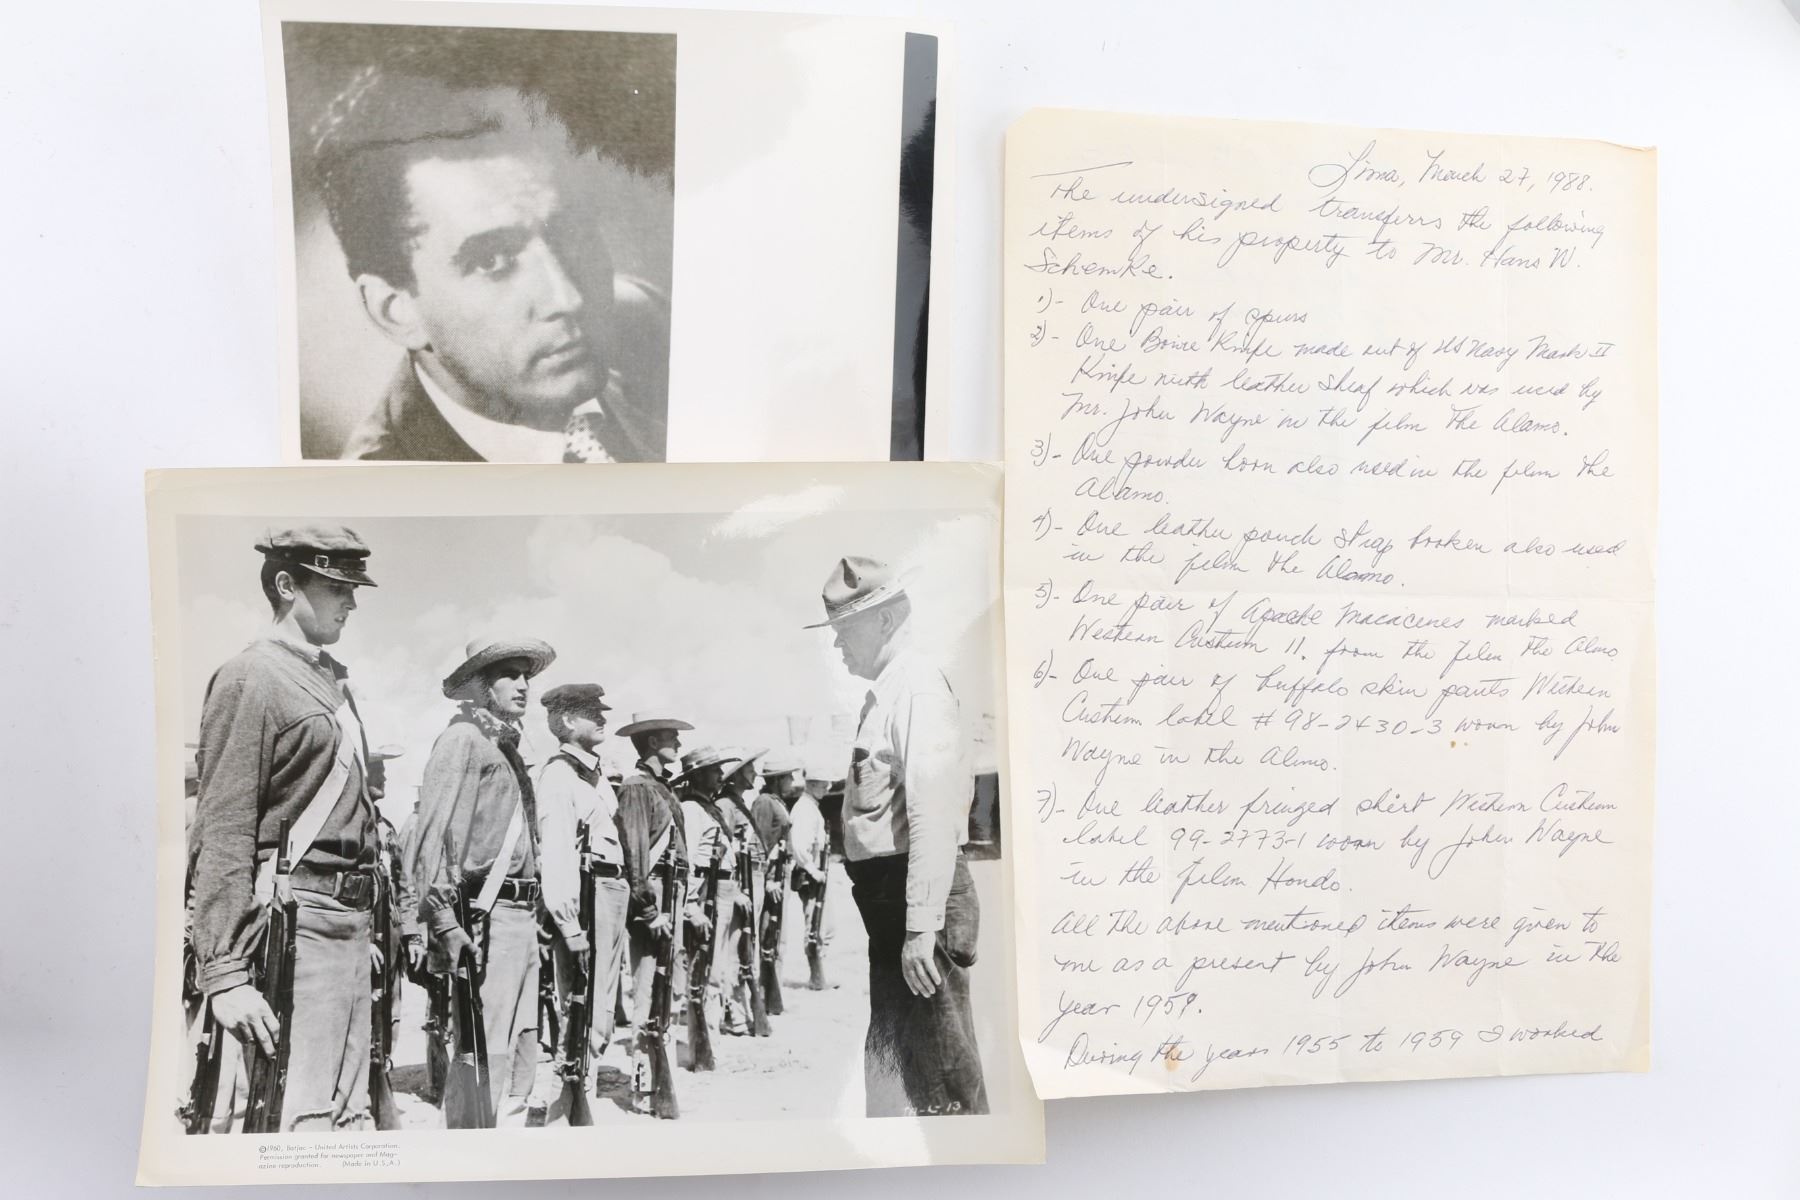 Lima, March 27, 1988.
The undersigned transferrs the following
items of his property to Mr. Hans W.
Schemke.
1)- One pair of spurs
2)- One Bowie Knife made out of US Navy Mark II
Knife with leather sheaf which was used by
Mr. John Wayne in the film The Alamo.
3)- One powder horn also used in the film The
Alamo.
4)- One leather pouch strap broken also used
in the film the Alamo.
5)- One pair of Apache Macacenes marked
Western Custium 11. from the film The Almo
6)- One pair of buffalo skin pants Western
Custium label # 98-2430-3 worn by John
Wayne in the Alimo.
7)- One leather fringed shirt Western Custium
label 99-2773-1 worn by John Wayne
in the film Hondo.
All the above mentioned items were given to
me as a present by John Wayne in the
year 1959.
During the years 1955 to 1959 I worked
TA-L-13
©1960, Batjac - United Artists Corporation.
Permission granted for newspaper and Mag-
azine reproduction. (Made in U.S.A.)